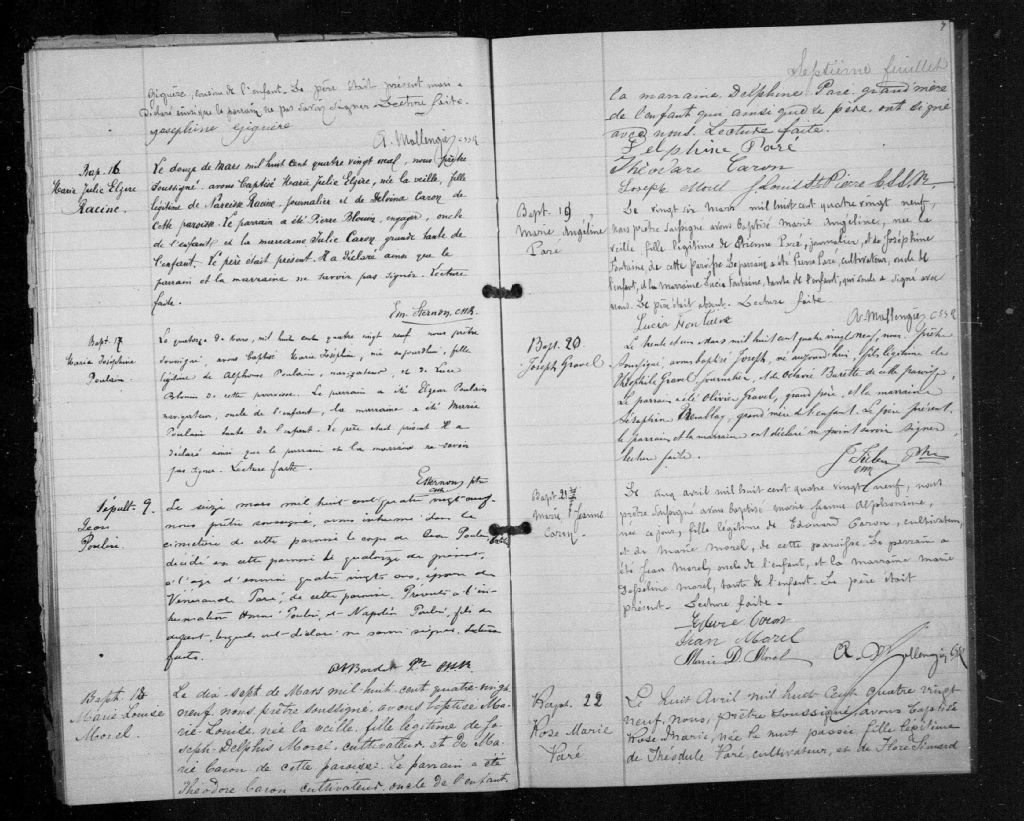 Giguère, cousine de l'enfant. Le père était présent mais a
déclaré ainsi que le parrain ne pas savoir signer. Lecture faite.
Josephine Giguère
A. Mallengier CSSR
Bap. 16
Marie Julie Elzire
Racine.
Le douze de mars mil huit cent quatre vingt neuf, nous prêtre
soussigné avons baptisé Marie Julie Elzire, née la veille, fille
légitime de Narcisse Racine, journalier et de Delvina Caron de
cette paroisse. Le parrain a été Pierre Blouin, engager, oncle
de l'enfant et la marraine Julie Caron grande tante de
l'enfant. Le père était présent. Il a déclaré ainsi que le
parrain et la marraine ne savoir pas signer. Lecture
faite.
Em. Vernon, CSSR.
Bapt. 17
Marie Joséphine
Poulain.
Le quatorze de mars, mil huit cent quatre vingt neuf nous prêtre
soussigné, avons baptisé Marie Joséphine, née aujourdhui, fille
légitime de Alphonse Poulain, navigateur, et de Luce
Blouin de cette paroisse. Le parrain a été Elzear Poulain
navigateur, oncle de l'enfant, la marraine a été Marie
Poulain tante de l'enfant. Le père était présent il a
déclaré ainsi que le parrain et la marraine ne savoir
pas signer. Lecture faite.
E. Vernon ptr
CSSR
Sépult. 9.
Jean
Poulin.
Le seize mars mil huit cent quatre vingt neuf
nous prêtre soussigné, avons inhumé dans le
cimetière de cette paroisse le corps de Jean Poulin
décédé en cette paroisse le quatorze du présent,
à l'age d'environ quatre vingts ans, époux de
Vénérande Paré, de cette paroisse. Présents à l'in-
humation Henri Poulin, et Napoléon Poulin, fils du
défunt, lesquels ont déclaré ne savoir signer. Lecture
faite.
Ptr CSSR
Bapt. 18
Marie Louise
Morel.
Le dix-sept de Mars mil huit-cent quatre-vingt
neuf, nous prêtre soussigné, avons baptisé Ma-
rie-Louise, née la veille, fille légitime de Jo-
seph-Delphis Morel, cultivateur, et de Ma-
rie Caron de cette paroisse. Le parrain a été
Théodore Caron cultivateur, oncle de l'enfant
7
Septième feuillet
la marraine, Delphine Paré, grand'mère
de l'enfant qui ainsi que le père, ont signé
avec nous. Lecture faite.
Delphine Paré
Théodare Caron
Joseph Morel J Louis St Pierre C.SS.R.
Bapt. 19
Marie Angéline
Paré
Le vingt six mars mil huit cent quatre vingt neuf,
nous prêtre soussigné avons baptisé Marie Angéline, née la
veille fille légitime de Etienne Paré, journalier, et de Joséphine
Fontaine, de cette paroisse. Le parrain a été Pierre Paré, cultivateur, oncle de
l'enfant, et la marraine Lucia Fontaine, tante de l'enfant, qui seule a signé avec
nous. Le père était absent. Lecture faite
Lucia Fontaine
A. Mallengier CSSR
Bapt. 20
Joseph Gravel
Le trente et un Mars mil huit cent quatre vingt neuf, nous, Prêtre
soussigné, avons baptisé Joseph, né aujourd'hui, fils légitime de
Théophile Gravel journalier, et de Octavie Barette de cette paroisse.
Le parrain a été Olivier Gravel, grand père, et la marraine
Séraphine Tremblay, grand'mère de l'enfant. Le père présent,
le parrain, et la marraine ont déclaré ne point savoir signer.
lecture faite.
Ptre
Bapt 21
Marie Jeanne
Caron.
Le cinq avril mil huit cent quatre vingt neuf, nous
prêtre soussigné avons baptisé Marie Jeanne Alphonsine,
née ce jour, fille légitime de Edouard Caron, cultivateur,
et de Marie Morel, de cette paroisse. Le parrain a
été Jean Morel, oncle de l'enfant, et la marraine Marie
Delphine Morel, tante de l'enfant. Le père était
présent. Lecture faite.
Caron
Jean Morel
Marie D. Morel A. Mallengier CSSR
Bapt. 22
Rose Marie
Paré
Le huit Avril mil huit Cent quatre vingt
neuf, nous, prêtre soussigné, avons baptisé
Rose-Marie, née la nuit passée, fille légitime
de Théodule Paré, cultivateur, et de Flore Simard